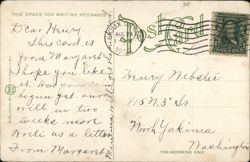 THIS SPACE FOR WRITING MESSAGES
Post Card
AUG
Dear Henry.
This card is
from Margaret
hope you like
it. Has your
begun yet ours
will in two
weeks more
Write us a letter
From Margaret
Henry Webster
115 N 3rd St
North Yakima
Washington
FOR ADDRESS ONLY